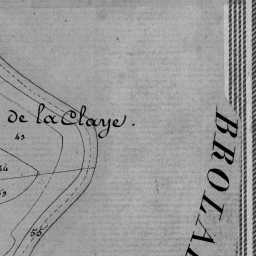 de la Claye.
43
44
55
BROLA